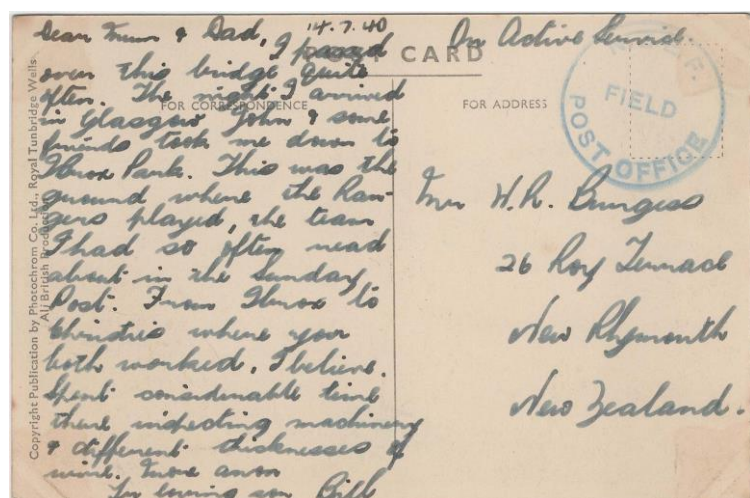 14.7.40
Dear Mum & Dad, I passed
over this bridge quite
often. The night I arrived
in Glasgow John & some
friends took me down to
Ibrox Park. This was the
ground where the Ran-
gers played, the team
I had so often read
about in the Sunday
Post. From Ibrox to
Christies where you
both worked, I believe.
Spent considerable time
there inspecting machinery
& different thicknesses of
wire. More anon
Yr loving son Bill
POST CARD
FOR CORRESPONDENCE
Copyright Publication by Photochrom Co. Ltd., Royal Tunbridge Wells.
All British Production
On Active Service.
FOR ADDRESS
FIELD
POST OFFICE
Mrs W.R. Burgess
26 Roy Terrace
New Plymouth
New Zealand.